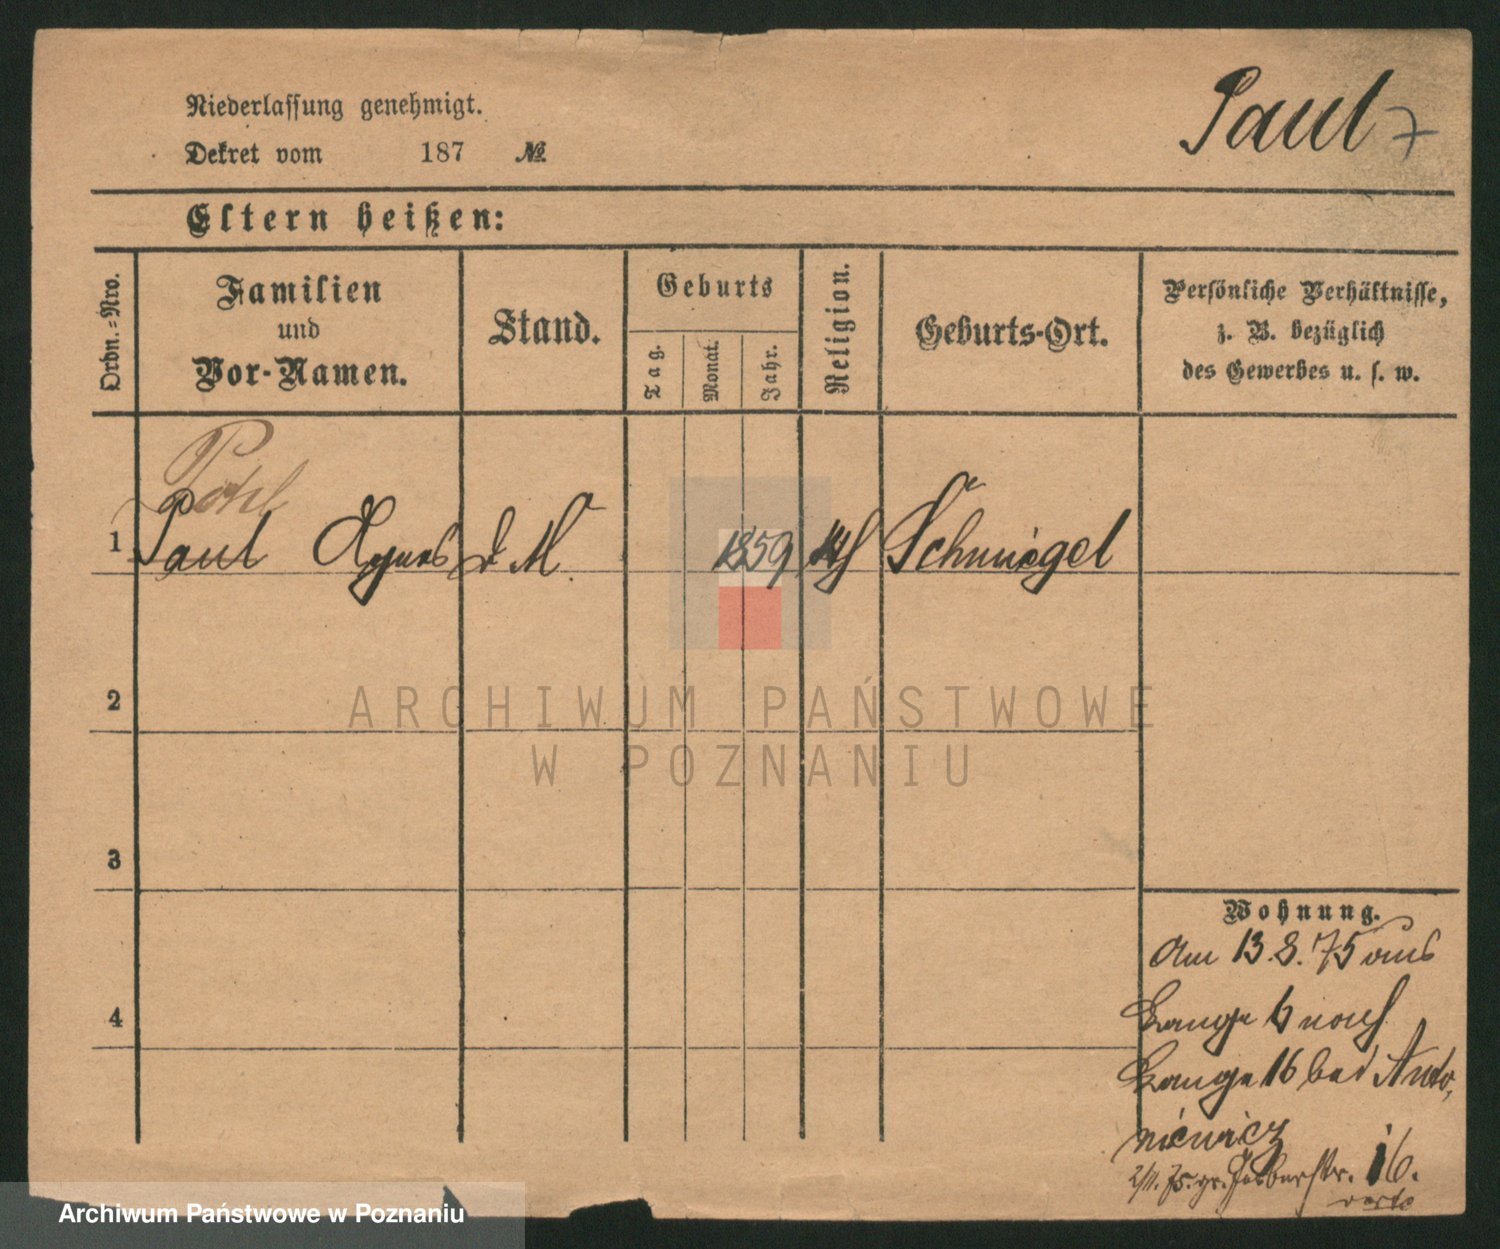 Niederlassung genehmigt.
Paul
Dekret vom 187 №
Eltern heißen:
Ordn.-Nro.
Familien
und
Vor-Namen.
Stand.
Geburts
Tag.
Monat.
Jahr.
Religion.
Geburts-Ort.
Persönliche Verhältnisse,
z. B. bezüglich
des Gewerbes u. s. w.
1 Paul Agnes d. M. 1859 Schmiegel
2
ARCHIWUM PAŃSTWOWE
W POZNANIU
3
4
Wohnung.
Am 13.8.75 aus
Lange 6 nach
Lange 16 bei Anto,
niewicz
2/11. 75. gr. Gerberstr. 16.
verte
Archiwum Państwowe w Poznaniu